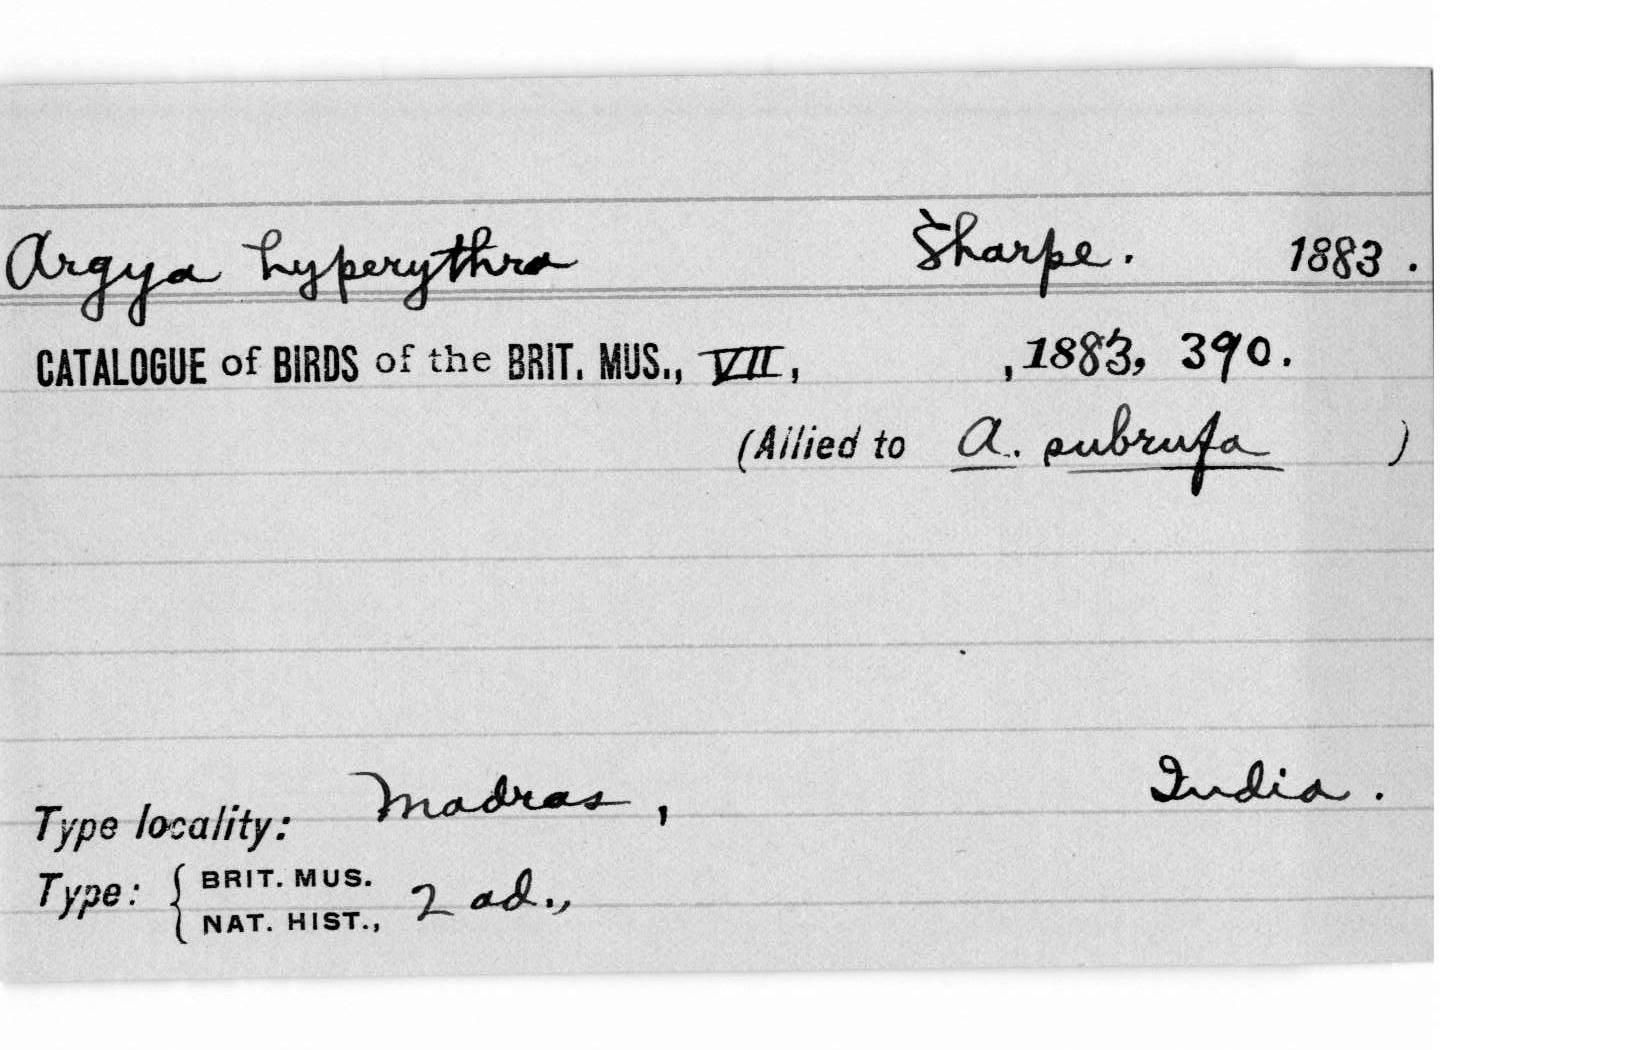 Argya hyperythra Sharpe. 1883.
CATALOGUE of BIRDS of the BRIT. MUS., VII, , 1883, 390.
(Allied to A. subrufa )
Type locality: Madras, India.
Type: { BRIT. MUS. NAT. HIST., 2 ad.,